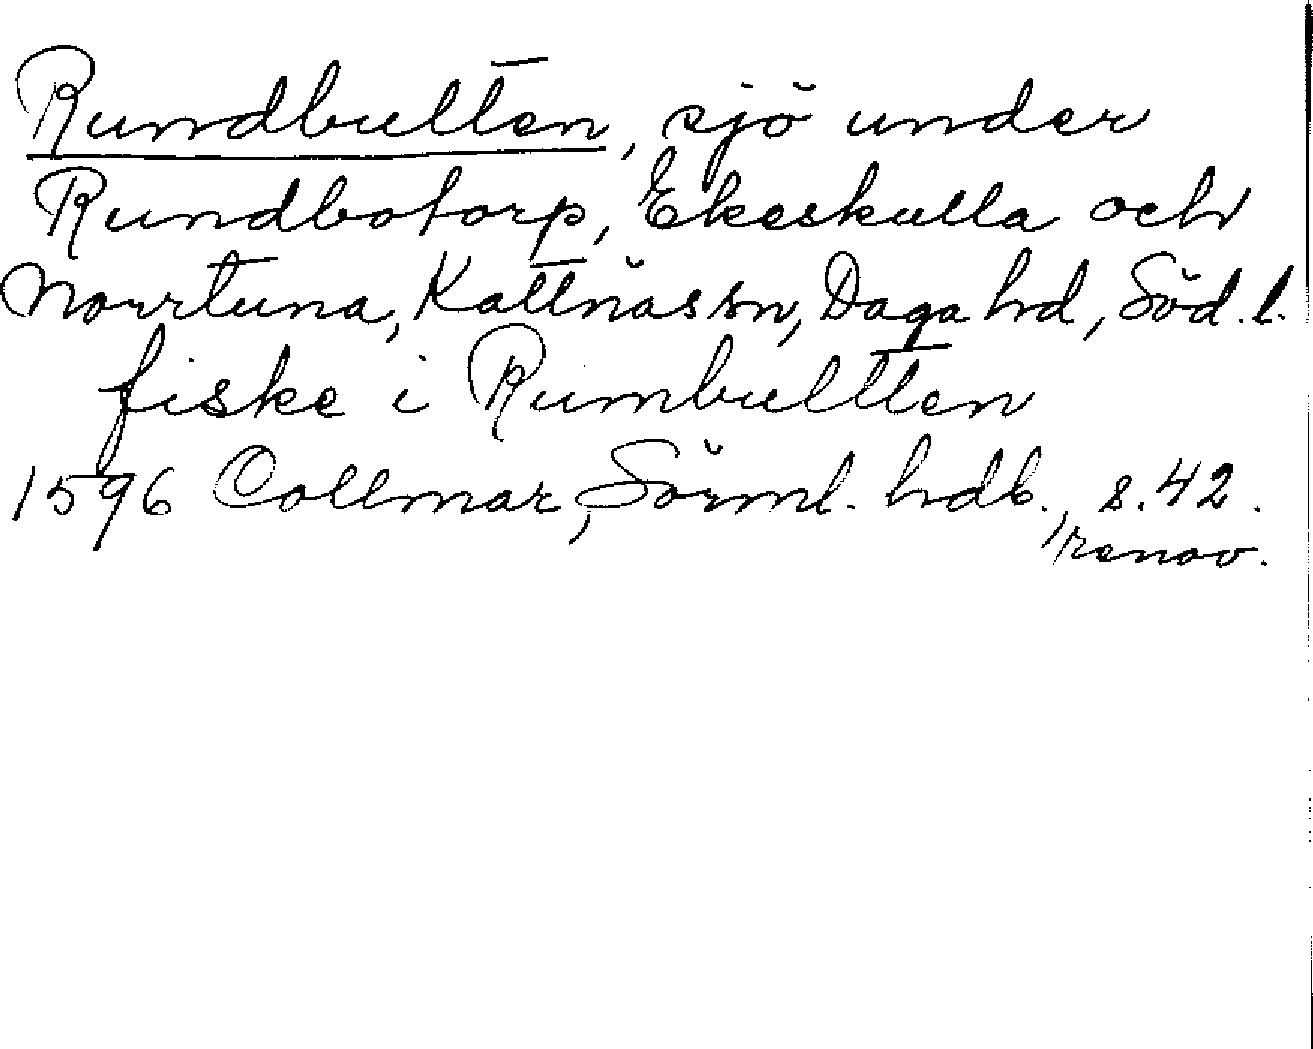 Rundbulten, sjö under
Rundbotorp, Ekeskulla och
Norrtuna, Kattnäs sn, Daga hd, Söd. l.
fiske i Rumbultten
1596 Collmar, Sörml. hdb., s. 42.
, renov.